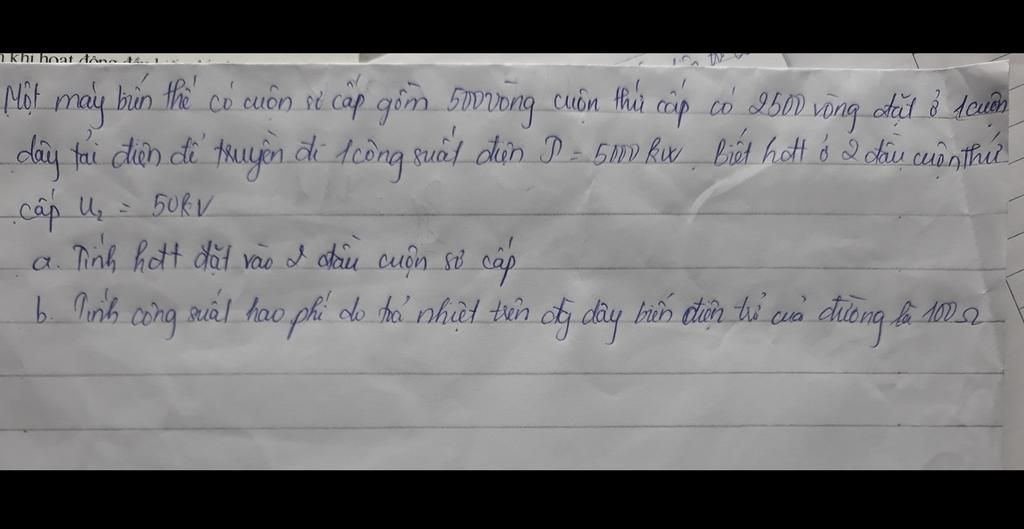 n khi hoạt động
Một máy biến thế có cuộn sơ cấp gồm 500 vòng cuộn thứ cấp có 2500 vòng đặt ở 1 cuộn
dây tải điện để truyền đi 1 công suất điện P = 5000 kW Biết hđt ở 2 đầu cuộn thứ
cấp U₂ = 50kV
a. Tính hđt đặt vào 2 đầu cuộn sơ cấp
b. Tính công suất hao phí do toả nhiệt trên đg dây biến điện trở của đường là 100Ω